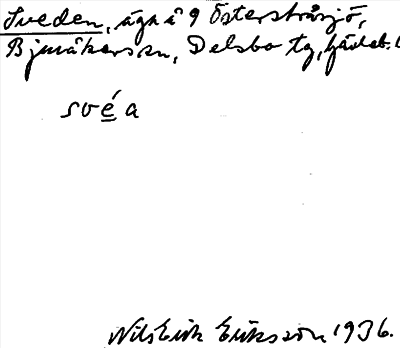 Sveden, äga å 9 Österstråsjö,
Bjuråkers sn, Delsbo tg, Gävleb. l
svéa
Nils Erik Eriksson 1936.